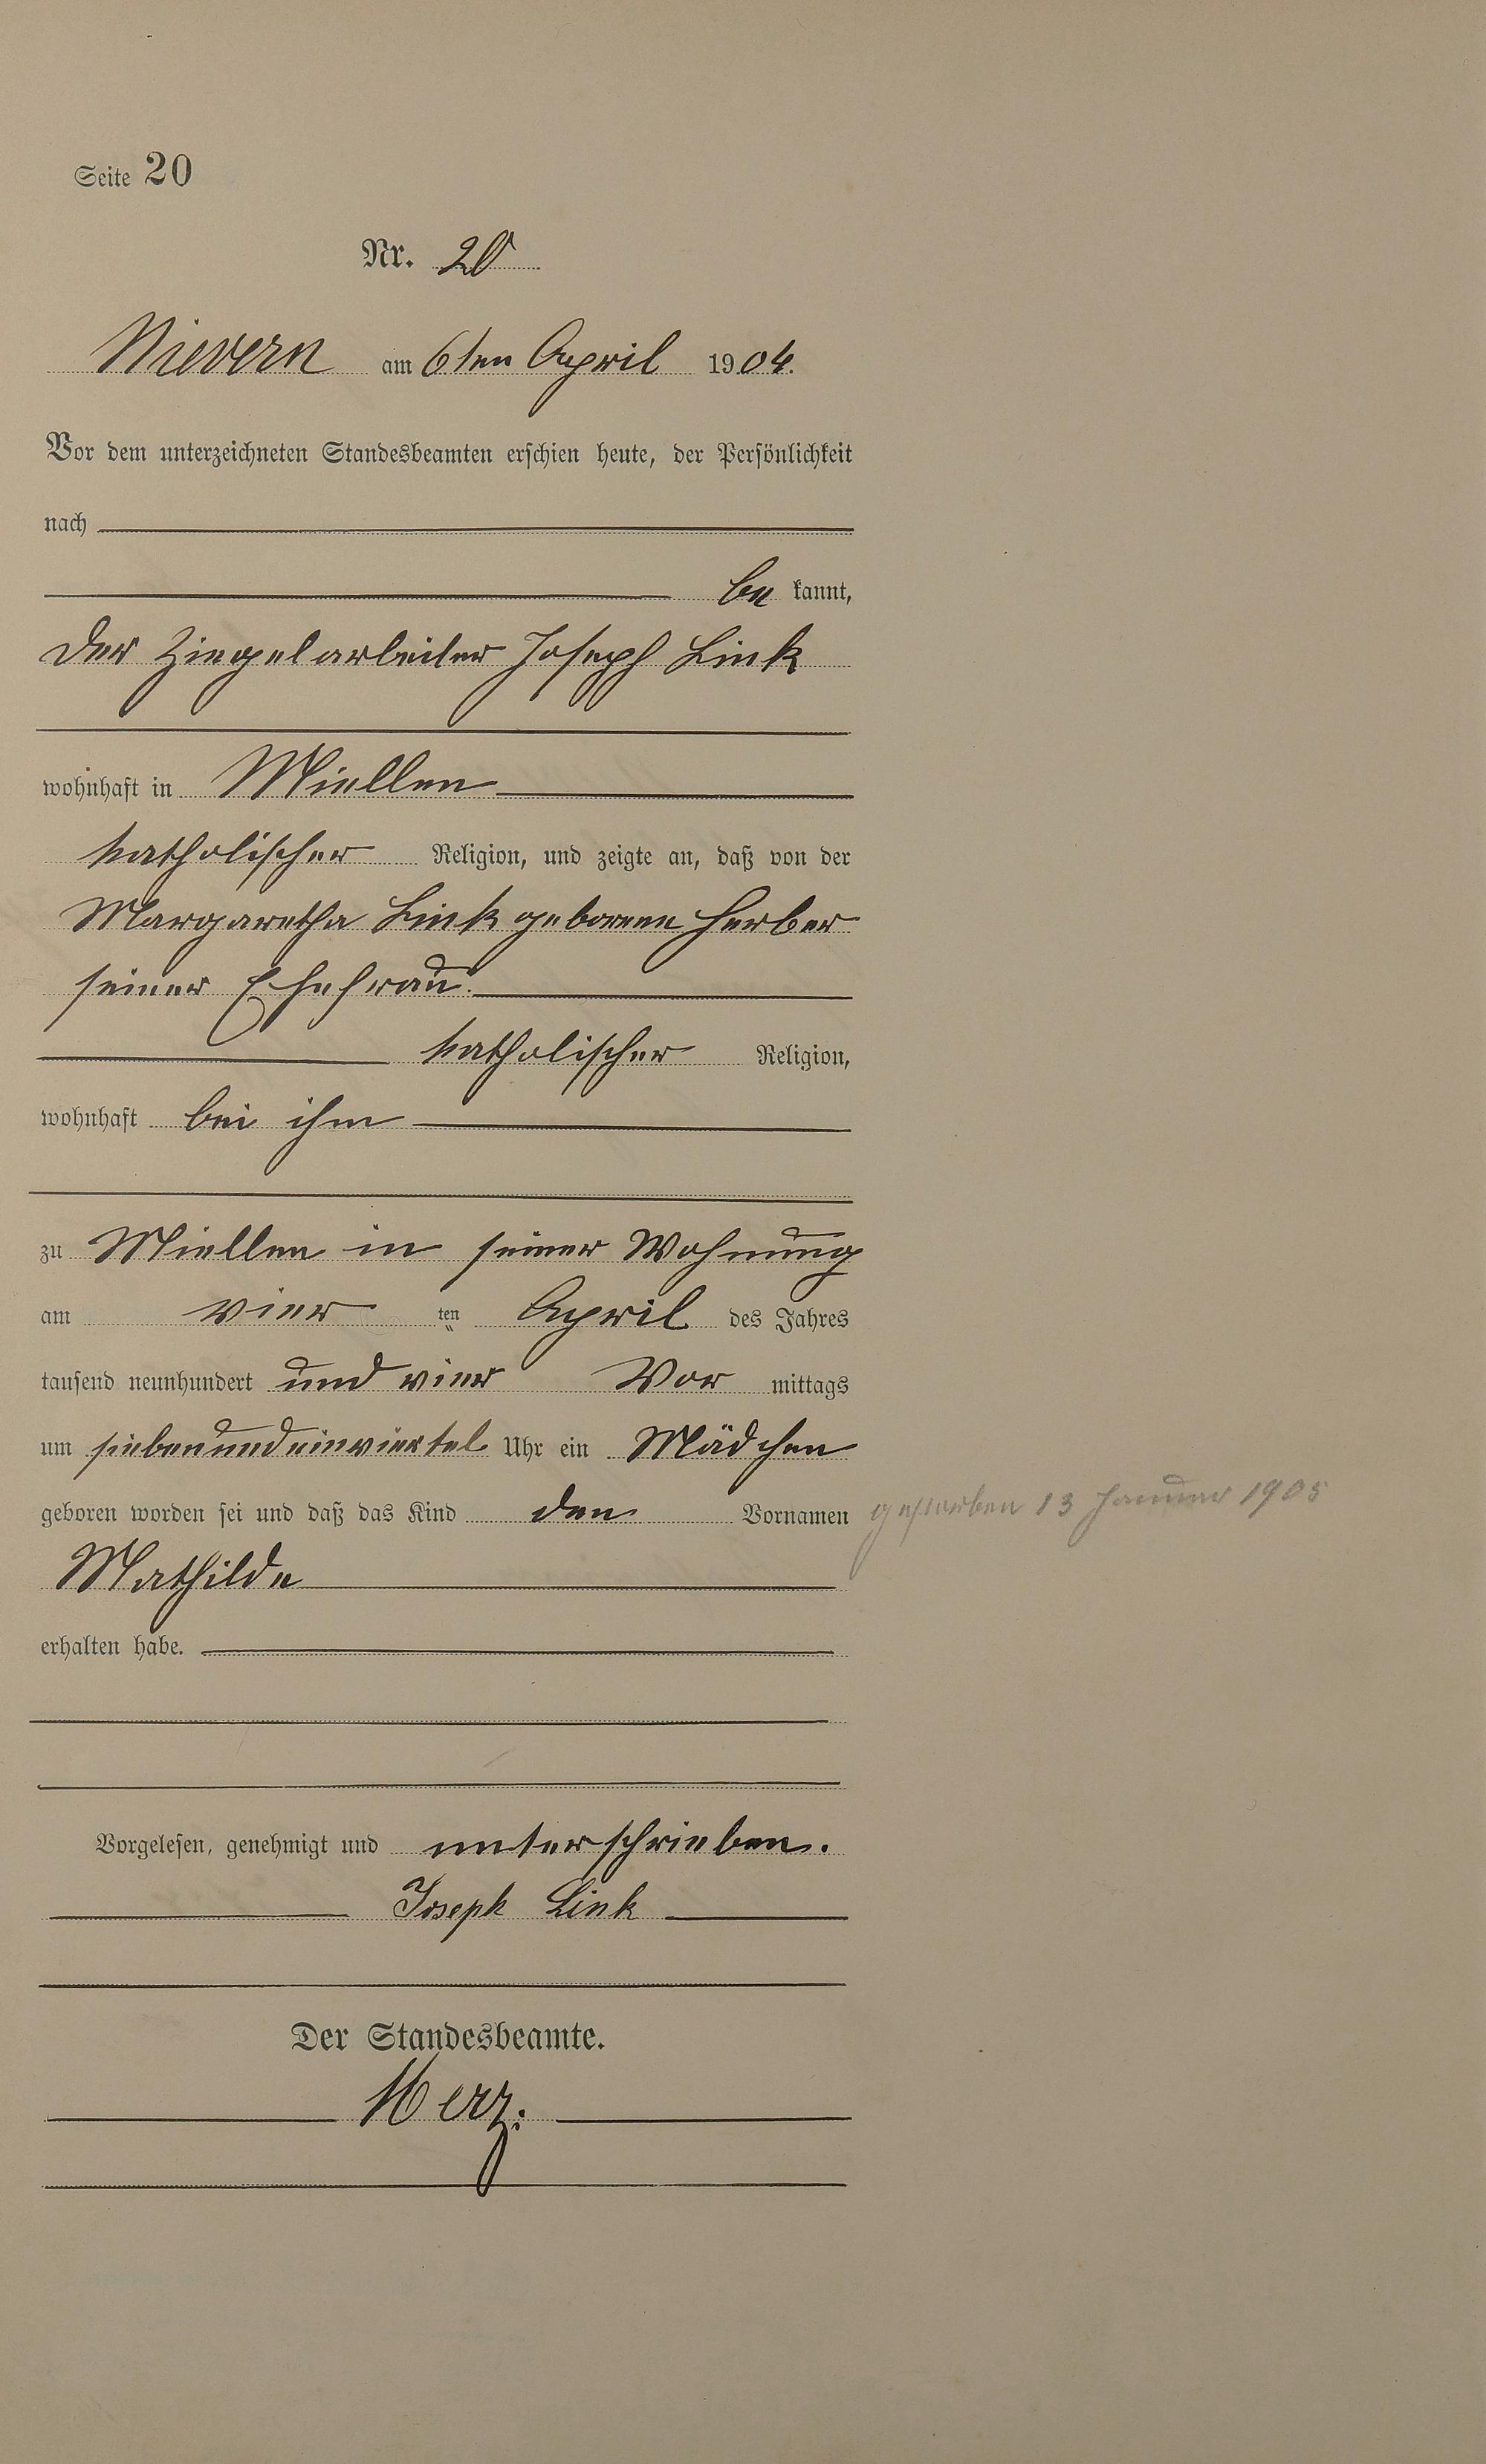 Seite 20
Nr. 20
Nievern am 6ten April 1904.
Vor dem unterzeichneten Standesbeamten erschien heute, der Persönlichkeit
nach
be kannt,
der Ziegelarbeiter Joseph Link
wohnhaft in Miellen
katholischer Religion, und zeigte an, daß von der
Margaretha Link geborene Herber
seiner Ehefrau
katholischer Religion,
wohnhaft bei ihm
zu Miellen in seiner Wohnung
am vier ten April des Jahres
tausend neunhundert und vier Vor mittags
um siebenundeinviertel Uhr ein Mädchen
geboren worden sei und daß das Kind den Vornamen gestorben 13 Januar 1905
Mathilde
erhalten habe.
Vorgelesen, genehmigt und unterschrieben.
Joseph Link
Der Standesbeamte.
Herz.